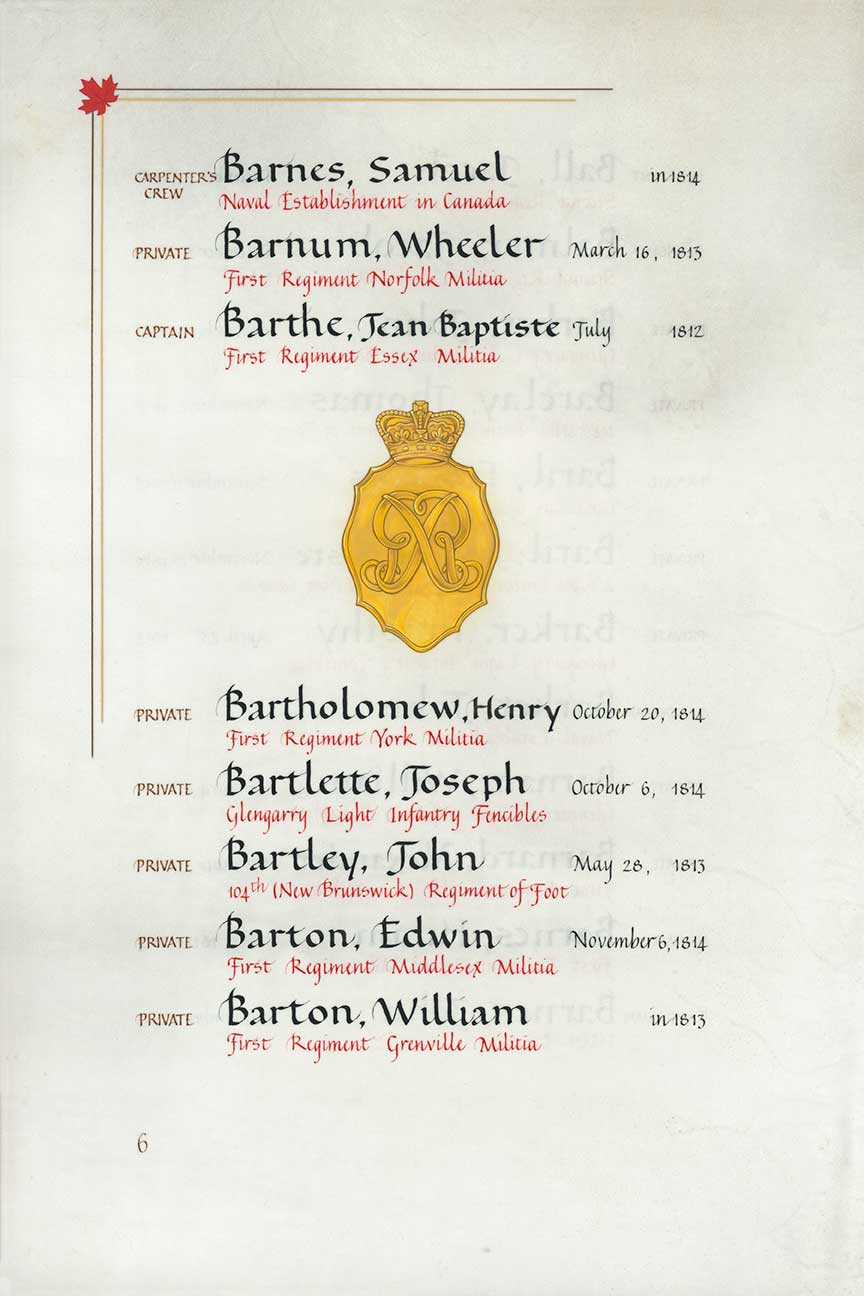 CARPENTER'S CREW Barnes, Samuel in 1814
Naval Establishment in Canada
PRIVATE Barnum, Wheeler March 16, 1813
First Regiment Norfolk Militia
CAPTAIN Barthe, Jean Baptiste July 1812
First Regiment Essex Militia
PRIVATE Bartholomew, Henry October 20, 1814
First Regiment York Militia
PRIVATE Bartlette, Joseph October 6, 1814
Glengarry Light Infantry Fencibles
PRIVATE Bartley, John May 28, 1813
104th (New Brunswick) Regiment of Foot
PRIVATE Barton, Edwin November 6, 1814
First Regiment Middlesex Militia
PRIVATE Barton, William in 1813
First Regiment Grenville Militia
6